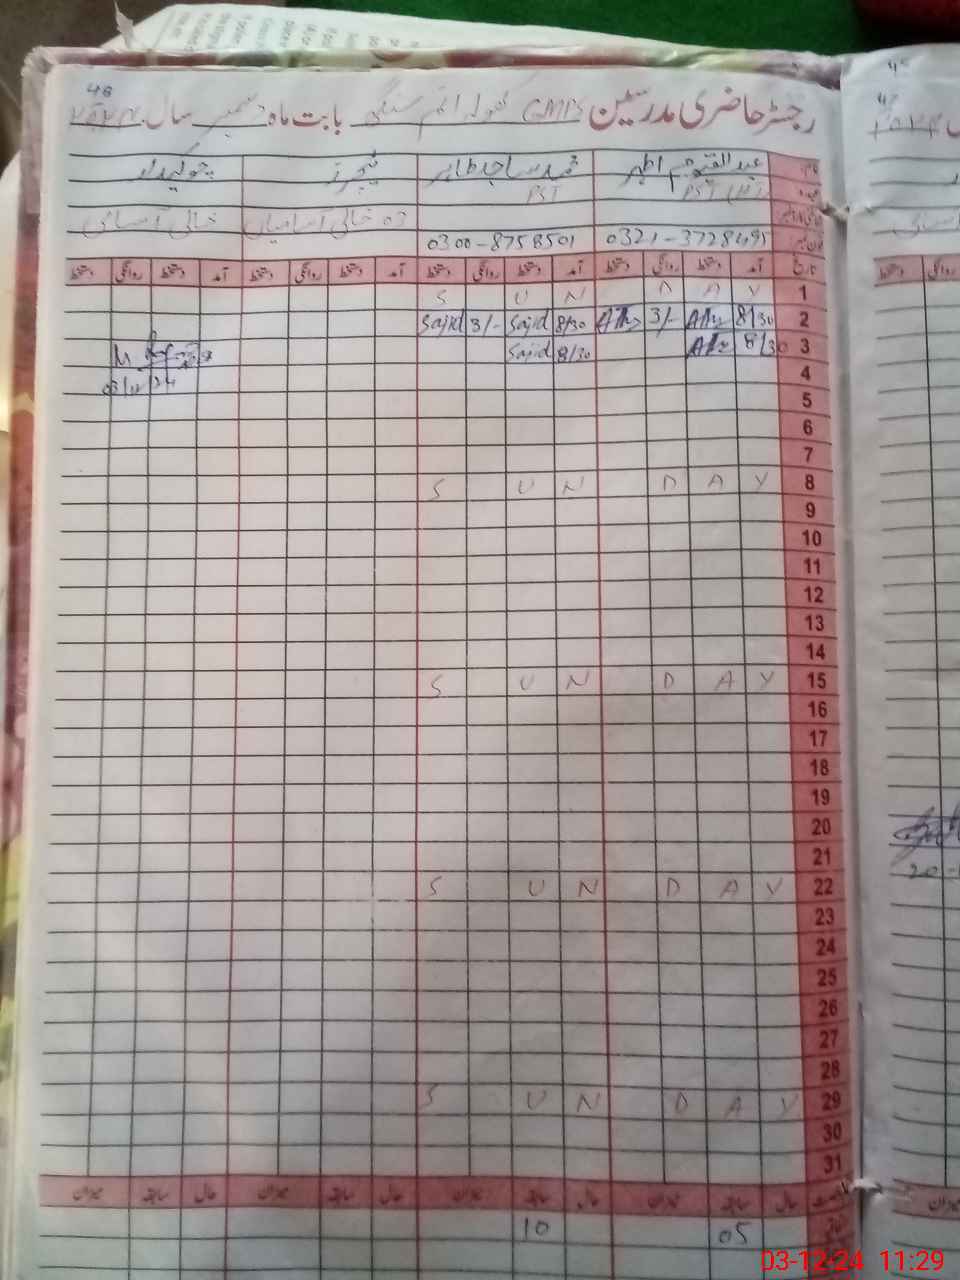 48
رجسٹر حاضری مدرسین GMPS گھوٹہ انم سنگی بابت ماہ دسمبر سال ۲۰۲۴
نام عبدالقیوم اطہر محمد ساجد طاہر ٹیچرز چوکیدار
عہدہ PST (H.T) PST
دو خالی آسامیاں خالی آسامی
فون نمبر 0321-3728495 0300-8758501
تاریخ آمد دستخط روانگی دستخط آمد دستخط روانگی دستخط آمد دستخط روانگی دستخط آمد دستخط روانگی دستخط
1 S U N D A Y
2 8/30 3/- 8/30 Sajid 3/- Sajid
3 8/30 8/30 Sajid
03/12/24
4
5
6
7
8 S U N D A Y
9
10
11
12
13
14
15 S U N D A Y
16
17
18
19
20
21
22 S U N D A Y
23
24
25
26
27
28
29 S U N D A Y
30
31
حال سابقہ میزان حال سابقہ میزان حال سابقہ میزان حال سابقہ میزان
05 10
03-12-24 11:29